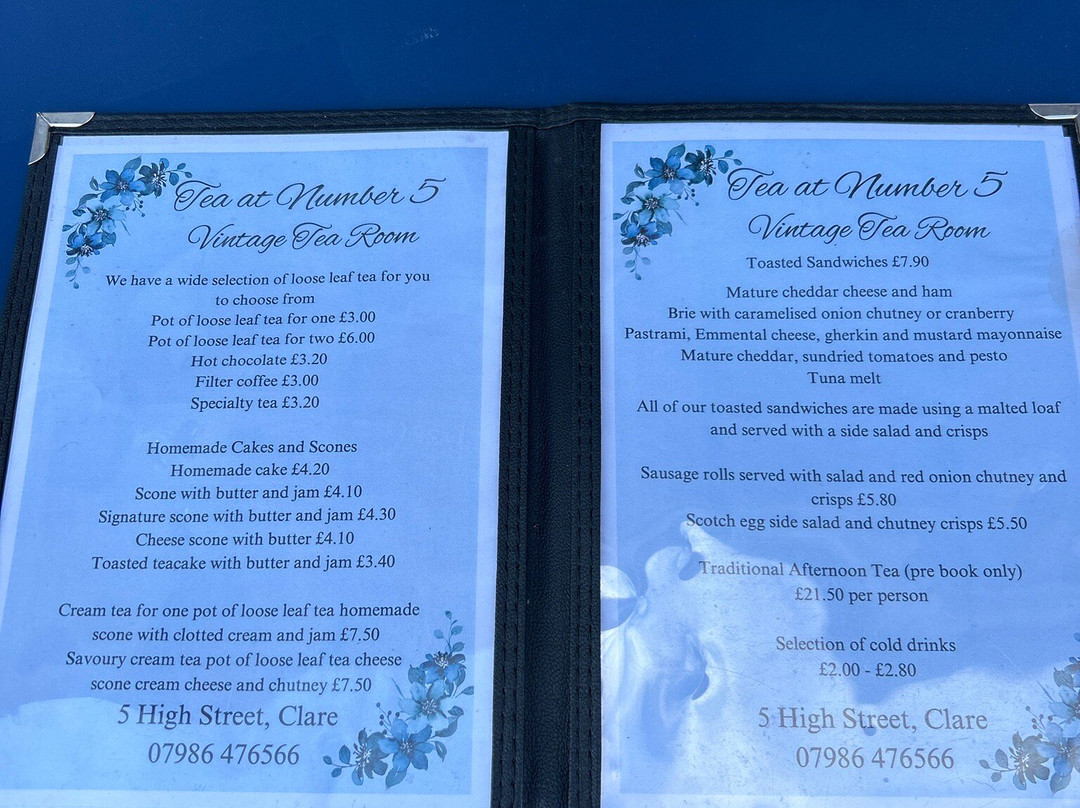 Tea at Number 5
Vintage Tea Room
We have a wide selection of loose leaf tea for you
to choose from
Pot of loose leaf tea for one £3.00
Pot of loose leaf tea for two £6.00
Hot chocolate £3.20
Filter coffee £3.00
Specialty tea £3.20
Homemade Cakes and Scones
Homemade cake £4.20
Scone with butter and jam £4.10
Signature scone with butter and jam £4.30
Cheese scone with butter £4.10
Toasted teacake with butter and jam £3.40
Cream tea for one pot of loose leaf tea homemade
scone with clotted cream and jam £7.50
Savoury cream tea pot of loose leaf tea cheese
scone cream cheese and chutney £7.50
5 High Street, Clare
07986 476566
Tea at Number 5
Vintage Tea Room
Toasted Sandwiches £7.90
Mature cheddar cheese and ham
Brie with caramelised onion chutney or cranberry
Pastrami, Emmental cheese, gherkin and mustard mayonnaise
Mature cheddar, sundried tomatoes and pesto
Tuna melt
All of our toasted sandwiches are made using a malted loaf
and served with a side salad and crisps
Sausage rolls served with salad and red onion chutney and
crisps £5.80
Scotch egg side salad and chutney crisps £5.50
Traditional Afternoon Tea (pre book only)
£21.50 per person
Selection of cold drinks
£2.00 - £2.80
5 High Street, Clare
07986 476566